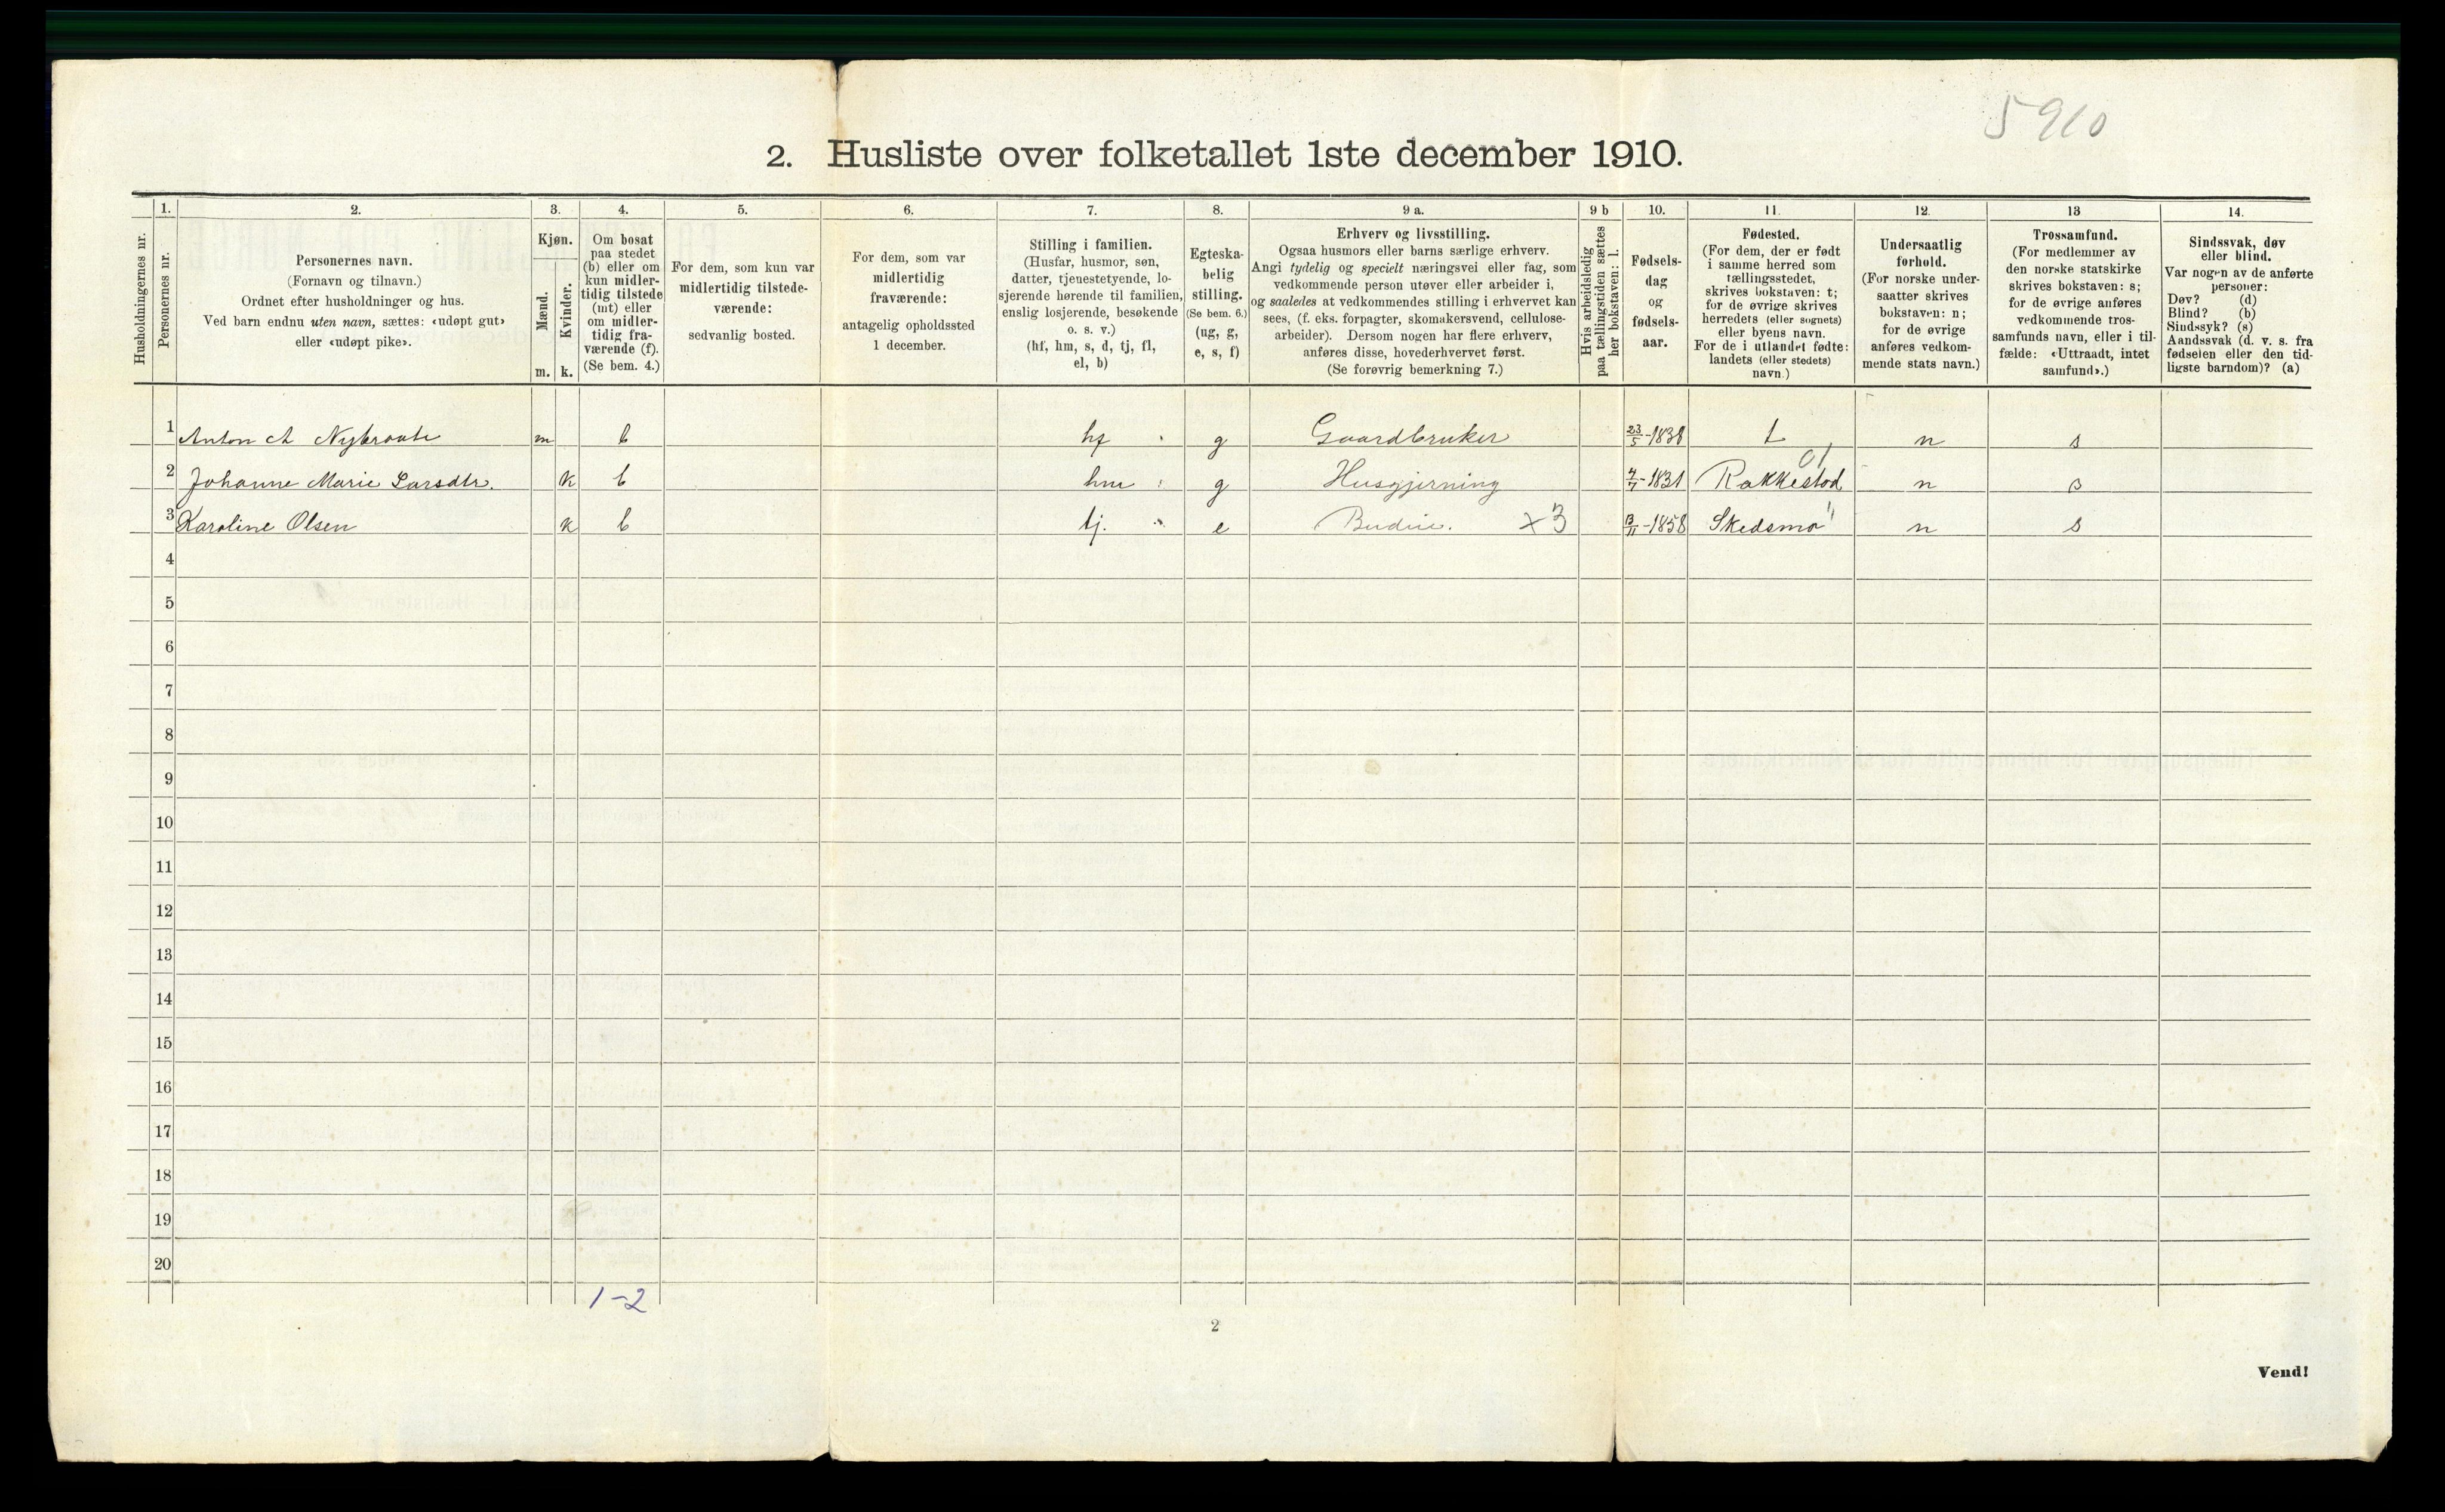 5910
2. Husliste over folketallet 1ste december 1910.
Husholdningernes nr.
1. Personernes nr.
2. Personernes navn. (Fornavn og tilnavn.) Ordnet efter husholdninger og hus. Ved barn endnu uten navn, sættes: «udøpt gut» eller «udøpt pike».
3. Kjøn. Mænd. m. Kvinder. k.
4. Om bosat paa stedet (b) eller om kun midlertidig tilstede (mt) eller om midlertidig fraværende (f). (Se bem. 4.)
5. For dem, som kun var midlertidig tilstedeværende: sedvanlig bosted.
6. For dem, som var midlertidig fraværende: antagelig opholdssted 1 december.
7. Stilling i familien. (Husfar, husmor, søn, datter, tjenestetyende, losjerende hørende til familien, enslig losjerende, besøkende o. s. v.) (hf, hm, s, d, tj, fl, el, b)
8. Egteskabelig stilling. (Se bem. 6.) (ug, g, e, s, f)
9 a. Erhverv og livsstilling. Ogsaa husmors eller barns særlige erhverv. Angi tydelig og specielt næringsvei eller fag, som vedkommende person utøver eller arbeider i, og saaledes at vedkommendes stilling i erhvervet kan sees, (f. eks. forpagter, skomakersvend, cellulosearbeider). Dersom nogen har flere erhverv, anføres disse, hovederhvervet først. (Se forøvrig bemerkning 7.)
9 b Hvis arbeidsledig paa tællingstiden sættes her bokstaven: l.
10. Fødselsdag og fødselsaar.
11. Fødested. (For dem, der er født i samme herred som tællingsstedet, skrives bokstaven: t; for de øvrige skrives herredets (eller sognets) eller byens navn. For de i utlandet fødte: landets (eller stedets) navn.)
12. Undersaatlig forhold. (For norske undersaatter skrives bokstaven: n; for de øvrige anføres vedkommende stats navn.)
13 Trossamfund. (For medlemmer av den norske statskirke skrives bokstaven: s; for de øvrige anføres vedkommende trossamfunds navn, eller i tilfælde: «Uttraadt, intet samfund».)
14. Sindssvak, døv eller blind. Var nogen av de anførte personer: Døv? (d) Blind? (b) Sindssyk? (s) Aandssvak (d. v. s. fra fødselen eller den tidligste barndom)? (a)
1 Anton A Nybraate m b hf g Gaardbruker 23/5-1838 t n s
01
2 Johanne Marie Larsdtr. k b hm g Husgjerning 7/7-1831 Rakkestad n s
3 Karoline Olsen k b tj. e Budeie. x3 13/11-1858 Skedsmo " n s
4
5
6
7
8
9
10
11
12
13
14
15
16
17
18
19
20
1-2
2
Vend!